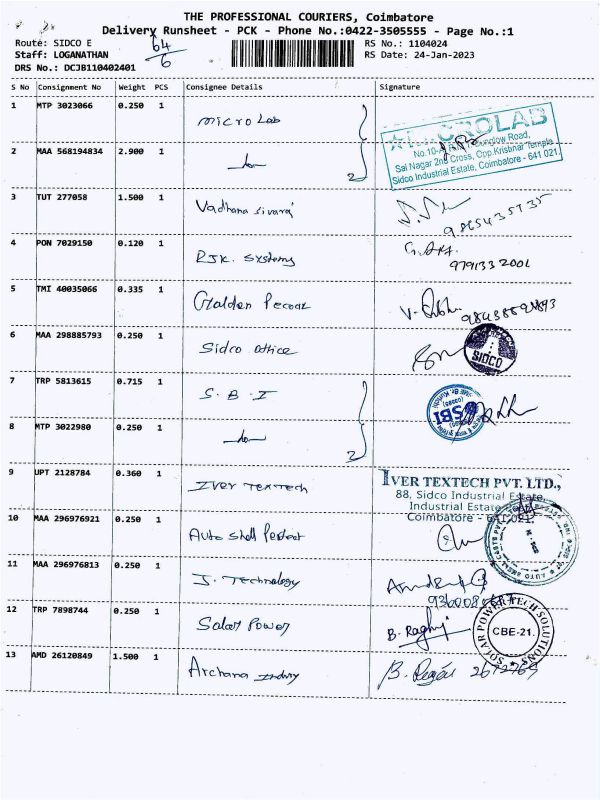 THE PROFESSIONAL COURIERS, Coimbatore
Delivery Runsheet - PCK - Phone No.:0422-3505555 - Page No.:1
Route: SIDCO E 64/6 RS No.: 1104024
Staff: LOGANATHAN RS Date: 24-Jan-2023
DRS No.: DCJB110402401
S No Consignment No Weight PCS Consignee Details Signature
1 MTP 3023066 0.250 1 Micro Lab
MICROLAB
Sai Nagar 2nd Cross, Opp.Krishnar Temple
Sidco Industrial Estate, Coimbatore - 641 021
2 MAA 568194834 2.900 1 2
3 TUT 277058 1.500 1 Vadhana Sivaraj
4 PON 7029150 0.120 1 RJK. Systems
9791332001
5 TMI 40035066 0.335 1 Golden
6 MAA 298885793 0.250 1 Sidco office
SIDCO
7 TRP 5813615 0.715 1 S. B. I
SBI
8 MTP 3022980 0.250 1 2
9 UPT 2128784 0.360 1 Iver Textech
IVER TEXTECH PVT. LTD.,
88, Sidco Industrial Estate,
Industrial Estate
Coimbatore - 641 021.
10 MAA 296976921 0.250 1 Auto Shell
11 MAA 296976813 0.250 1 J. Technology
12 TRP 7898744 0.250 1 Solar Power B. Raghu
SOLAR POWER TECH SOLUTIONS
CBE-21.
13 AMD 26120849 1.500 1 Archana